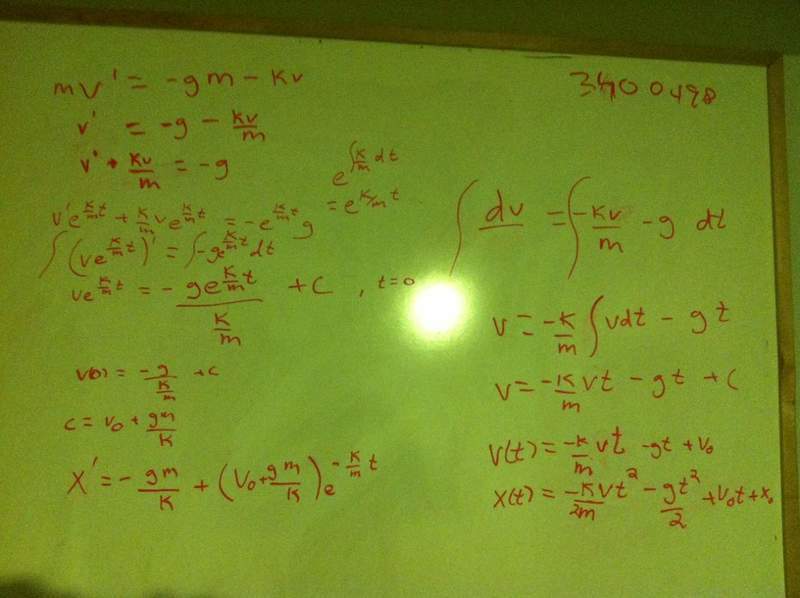 mv' = -gm - kv
v' = -g - kv/m
v' + kv/m = -g
e^(∫k/m dt)
= e^(k/m t)
v'e^(k/m t) + k/m ve^(k/m t) = -e^(k/m t) g
∫(ve^(k/m t))' = ∫-ge^(k/m t) dt
ve^(k/m t) = - ge^(k/m t) / (k/m) + C , t=0
v(0) = -g/(k/m) + C
C = v₀ + gm/k
x' = - gm/k + (v₀ + gm/k) e^(-k/m t)
∫ dv = ∫ -kv/m - g dt
v = -k/m ∫ vdt - gt
v = -k/m vt - gt + C
v(t) = -k/m vt - gt + v₀
x(t) = -k/2m vt² - gt²/2 + v₀t + x₀